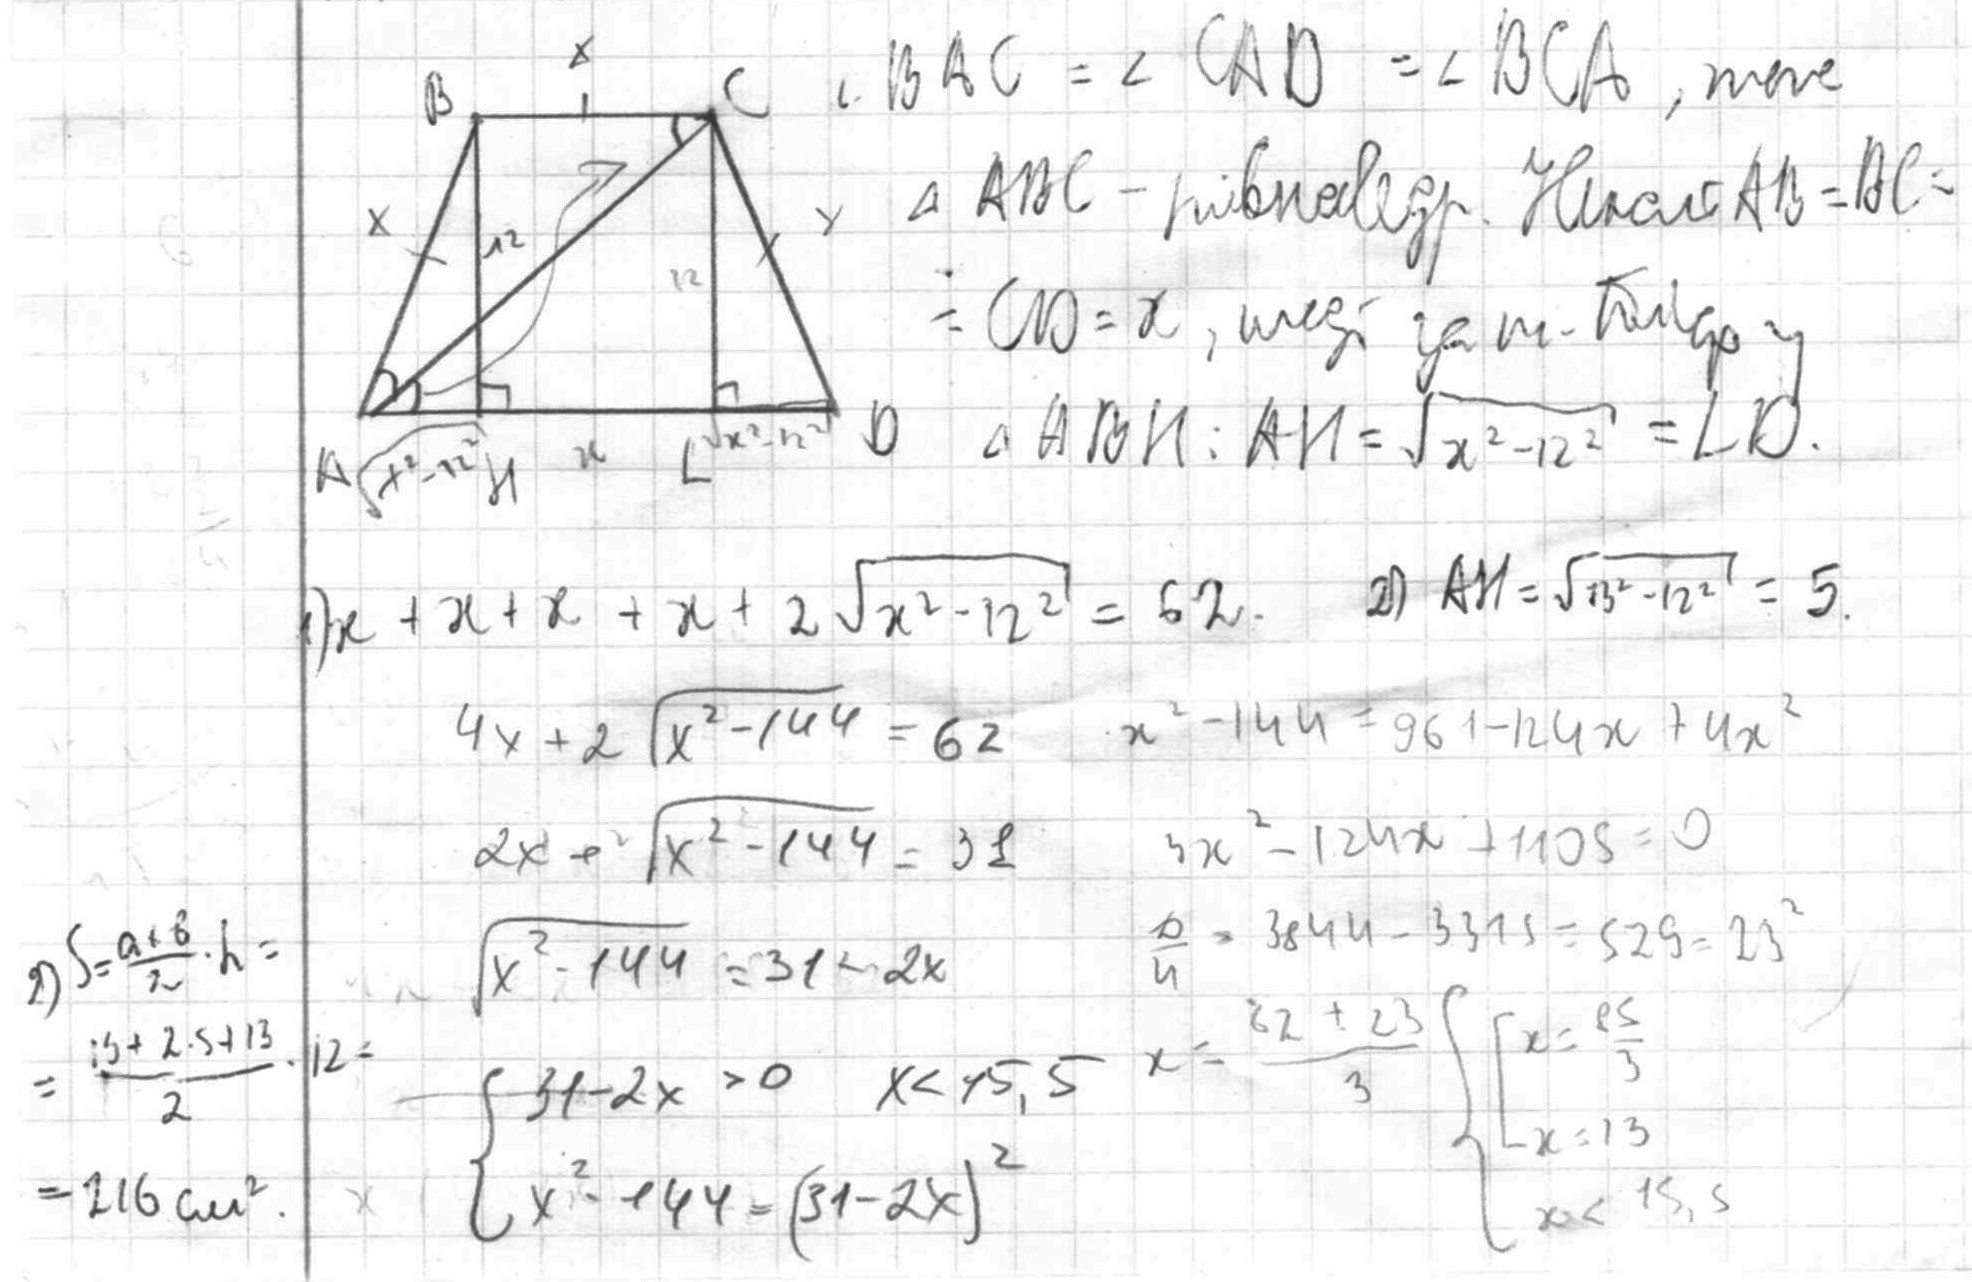 x
B C
x 12 12 x
A √x²-12² H x L √x²-12² D
∠BAC = ∠CAD = ∠BCA, тоне
△ABC - рівнобедр. Нехай AB = BC =
= CD = x, тоді за т. Піфагора у
△ABH: AH = √x²-12² = LD.
1) x + x + x + x + 2√x²-12² = 62.
4x + 2√x²-144 = 62
2x + √x²-144 = 31
√x²-144 = 31 - 2x
{ 31-2x > 0 x < 15,5
x²-144 = (31-2x)²
2) AH = √13²-12² = 5.
x²-144 = 961-124x+4x²
3x²-124x+1105=0
D/4 = 3844-3315 = 529 = 23²
x = (62 ± 23)/3 { [ x = 85/3
x = 13
x < 15,5
2) S = (a+b)/2 · h =
= (13+2·5+13)/2 · 12 =
= 216 см².